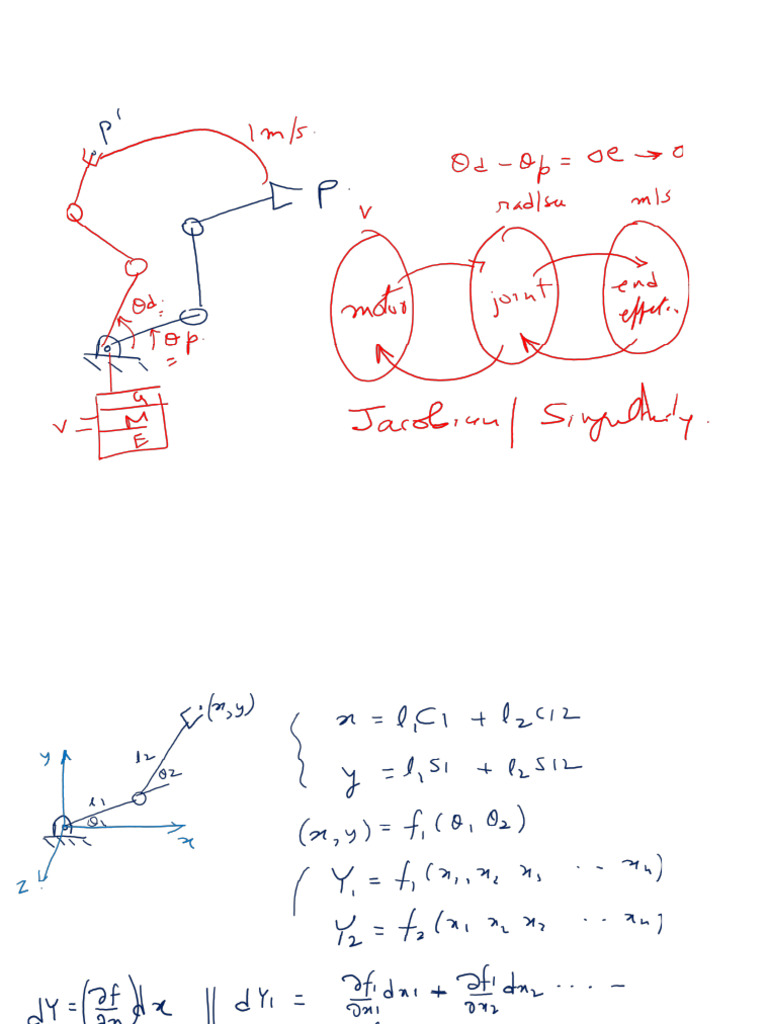 P'
1 m/s.
P.
θd - θp = θe → 0
V
rad/su
m/s
motor
joint
end
effect..
θd:
θp.
=
G
V = M
E
Jacobian / Singularity.
(x,y)
y
l2
θ2
l1
θ1
x
z
x = l1C1 + l2C12
y = l1S1 + l2S12
(x,y) = f1(θ1 θ2)
Y1 = f1(x1, x2 x3 .. xn)
Y2 = f2(x1 x2 x2 .. xn)
dY = (∂f/∂x)dx || dY1 = ∂f1/∂x1 dx1 + ∂f1/∂x2 dx2 .... -